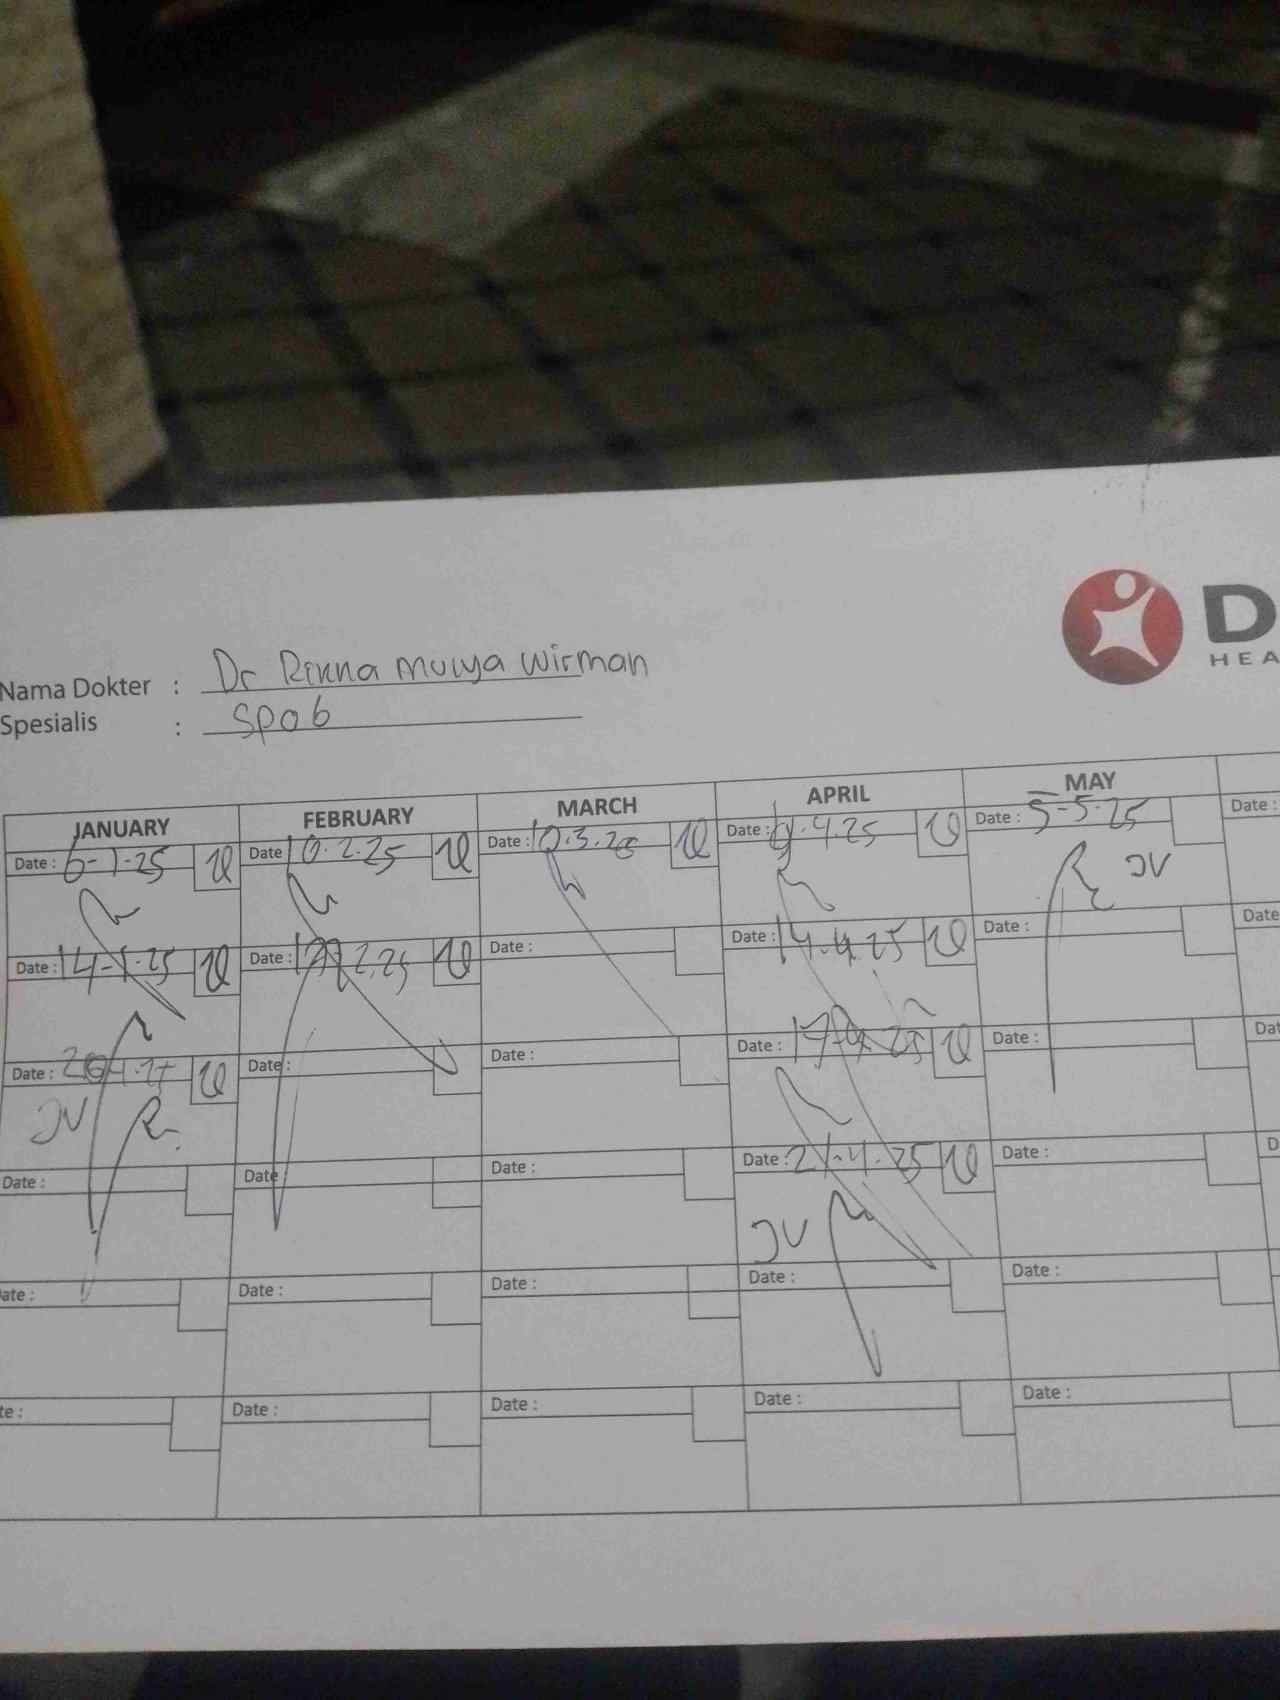 D
HEA
Nama Dokter : Dr Rikna Mulya Wirman
Spesialis : SPOG
JANUARY FEBRUARY MARCH APRIL MAY
Date : 6-1-25 Date 10.2.25 Date : 10.3.25 Date : 9.4.25 Date : 5-5-25 Date :
JV
Date : 14-1-25 Date : 2.25 Date : Date : 14.4.25 Date : Date
Date : Date : Date : Date : 17.4.25 Date : Dat
JV
Date : Date Date : Date : 21.4.25 Date : D
JV
ate : Date : Date : Date : Date :
te : Date : Date : Date : Date :